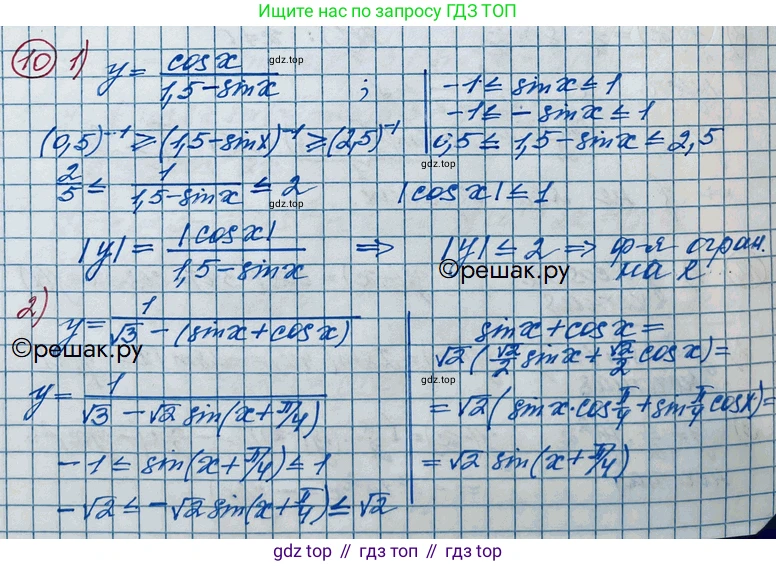 Ищите нас по запросу ГДЗ ТОП
10 1) y = cosx / (1,5 - sinx) ;
gdz.top
-1 ≤ sinx ≤ 1
-1 ≤ - sinx ≤ 1
0,5 ≤ 1,5 - sinx ≤ 2,5
(0,5)⁻¹ ≥ (1,5 - sinx)⁻¹ ≥ (2,5)⁻¹
gdz.top
2/5 ≤ 1/(1,5 - sinx) ≤ 2
gdz.top
|cosx| ≤ 1
|y| = |cosx| / (1,5 - sinx) ⇒ |y| ≤ 2 ⇒ ф-я огран.
на R
©решак.ру
gdz.top
2) y = 1 / (√3 - (sinx + cosx))
©решак.ру
sinx + cosx =
√2 (√2/2 sinx + √2/2 cosx) =
gdz.top
= √2 (sinx · cos π/4 + sin π/4 cosx) =
= √2 sin(x + π/4)
y = 1 / (√3 - √2 sin(x + π/4))
-1 ≤ sin(x + π/4) ≤ 1
-√2 ≤ -√2 sin(x + π/4) ≤ √2
gdz.top // гдз.топ // gdz.top